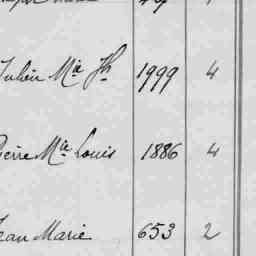 Julien Mie Jh 1999 4
Pierre Mie Louis 1886 4
Jean Marie 653 2